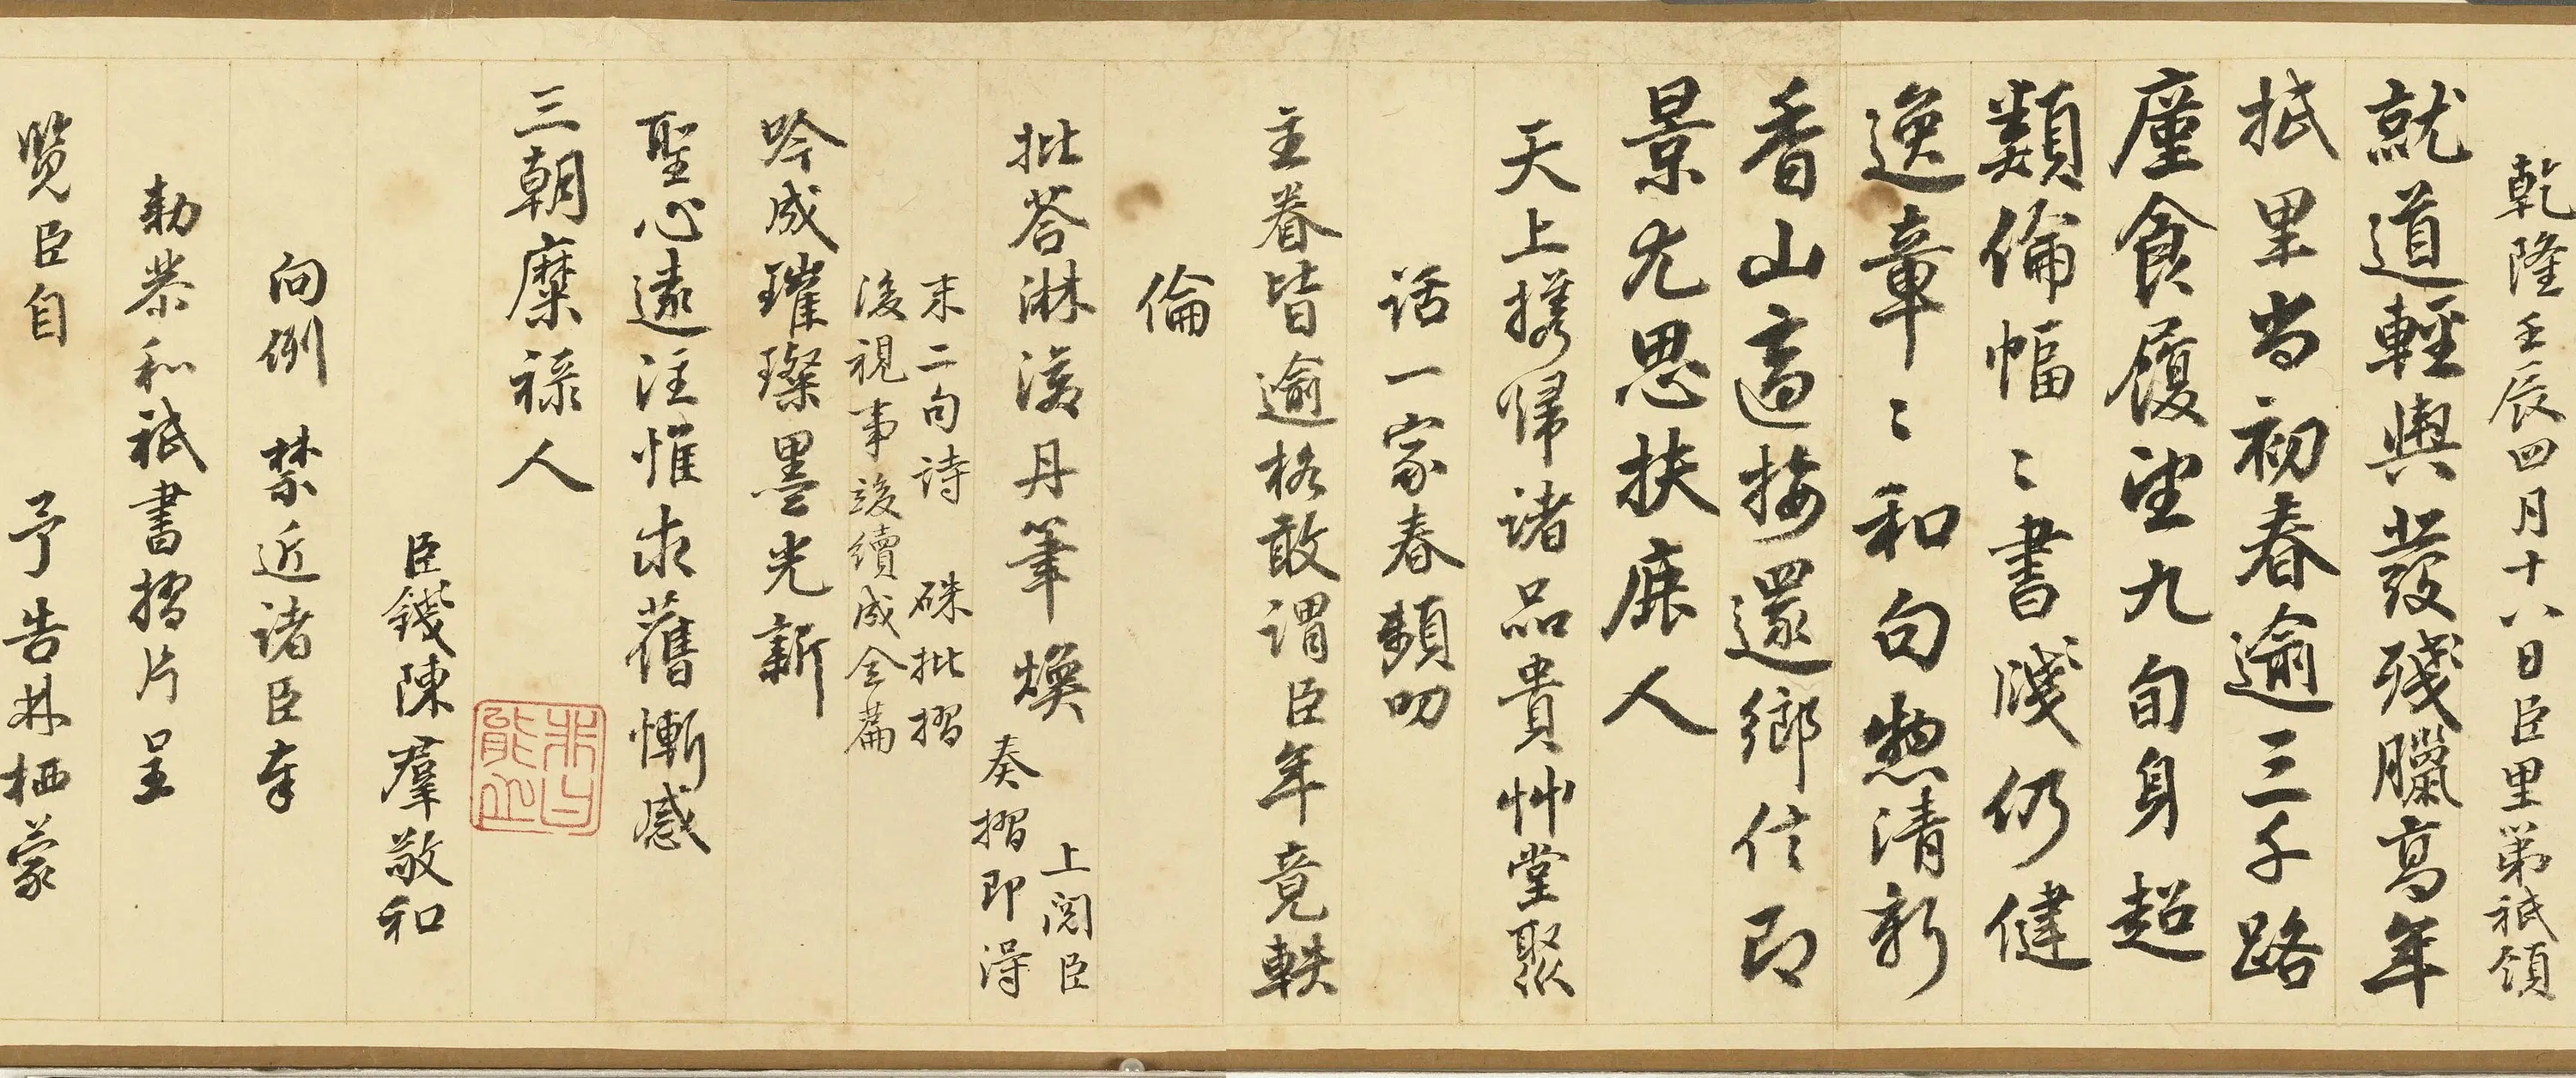 乾隆壬辰四月十八日臣里第祗領
就道輕輿發殘臘高年
抵里尚初春逾三千路
廑食履望九旬身超
類倫幅〻書牋仍健
逸章〻和句愁清新
香山適接還鄉信即
景尤思扶鹿人
天上攜歸諸品貴艸堂聚
話一家春頻叨
主眷皆逾格敢謂臣年竟軼
倫
批荅淋漓丹筆煥
上閱臣
奏摺即得
末二句詩 硃批摺
後視事竣續成全篇
吟成璀璨墨光新
聖心遠注惟求舊慚感
三朝糜祿人
臣錢陳羣敬和
向例 禁近諸臣奉
勅恭和祗書摺片呈
覽臣自 予告林栖蒙